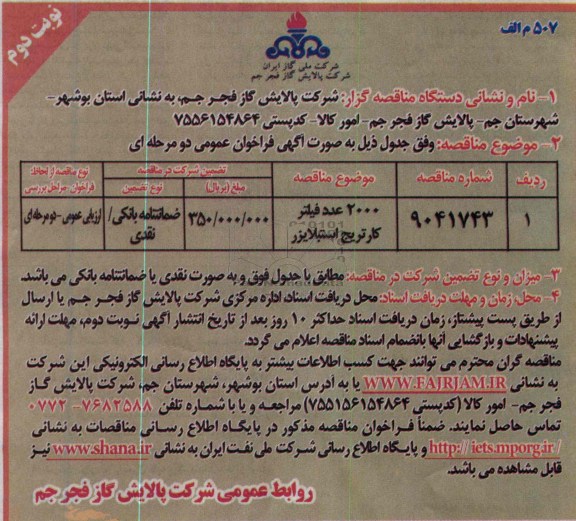 ۵۰۷ م الف
نوبت دوم
شرکت ملی گاز ایران
شرکت پالایش گاز فجر جم
۱- نام و نشانی دستگاه مناقصه گزار: شرکت پالایش گاز فجر جم، به نشانی استان بوشهر-
شهرستان جم- پالایش گاز فجر جم- امور کالا- کدپستی ۷۵۵۶۱۵۴۸۶۴
۲- موضوع مناقصه: وفق جدول ذیل به صورت آگهی فراخوان عمومی دو مرحله ای
ردیف | شماره مناقصه | موضوع مناقصه | تضمین شرکت در مناقصه | نوع مناقصه از لحاظ:
مبلغ (ریال) | نوع تضمین | فراخوان- مراحل بررسی
۱ | ۹۰۴۱۷۴۳ | ۲۰۰۰ عدد فیلتر | ۳۵۰/۰۰۰/۰۰۰ | ضمانتنامه بانکی/ | ارزیابی عمومی - دو مرحله ای
کارتریج استبلایزر | نقدی
۳- میزان و نوع تضمین شرکت در مناقصه: مطابق با جدول فوق و به صورت نقدی یا ضمانتنامه بانکی می باشد.
۴- محل، زمان و مهلت دریافت اسناد: محل دریافت اسناد، اداره مرکزی شرکت پالایش گاز فجر جم یا ارسال
از طریق پست پیشتاز، زمان دریافت اسناد حداکثر ۱۰ روز بعد از تاریخ انتشار آگهی نوبت دوم، مهلت ارائه
پیشنهادات و بازگشایی آنها بانضمام اسناد مناقصه اعلام می گردد.
مناقصه گران محترم می توانند جهت کسب اطلاعات بیشتر به پایگاه اطلاع رسانی الکترونیکی این شرکت
به نشانی WWW.FAJRJAM.IR یا به آدرس استان بوشهر، شهرستان جم، شرکت پالایش گاز
فجر جم- امور کالا (کدپستی ۷۵۵۱۵۶۱۵۴۸۶۴) مراجعه و یا با شماره تلفن ۷۶۸۲۵۸۸-۰۷۷۲
تماس حاصل نمایند. ضمناً فراخوان مناقصه مذکور در پایگاه اطلاع رسانی مناقصات به نشانی
http://iets.mporg.ir/ و پایگاه اطلاع رسانی شرکت ملی نفت ایران به نشانی www.shana.ir نیز
قابل مشاهده می باشد.
روابط عمومی شرکت پالایش گاز فجر جم